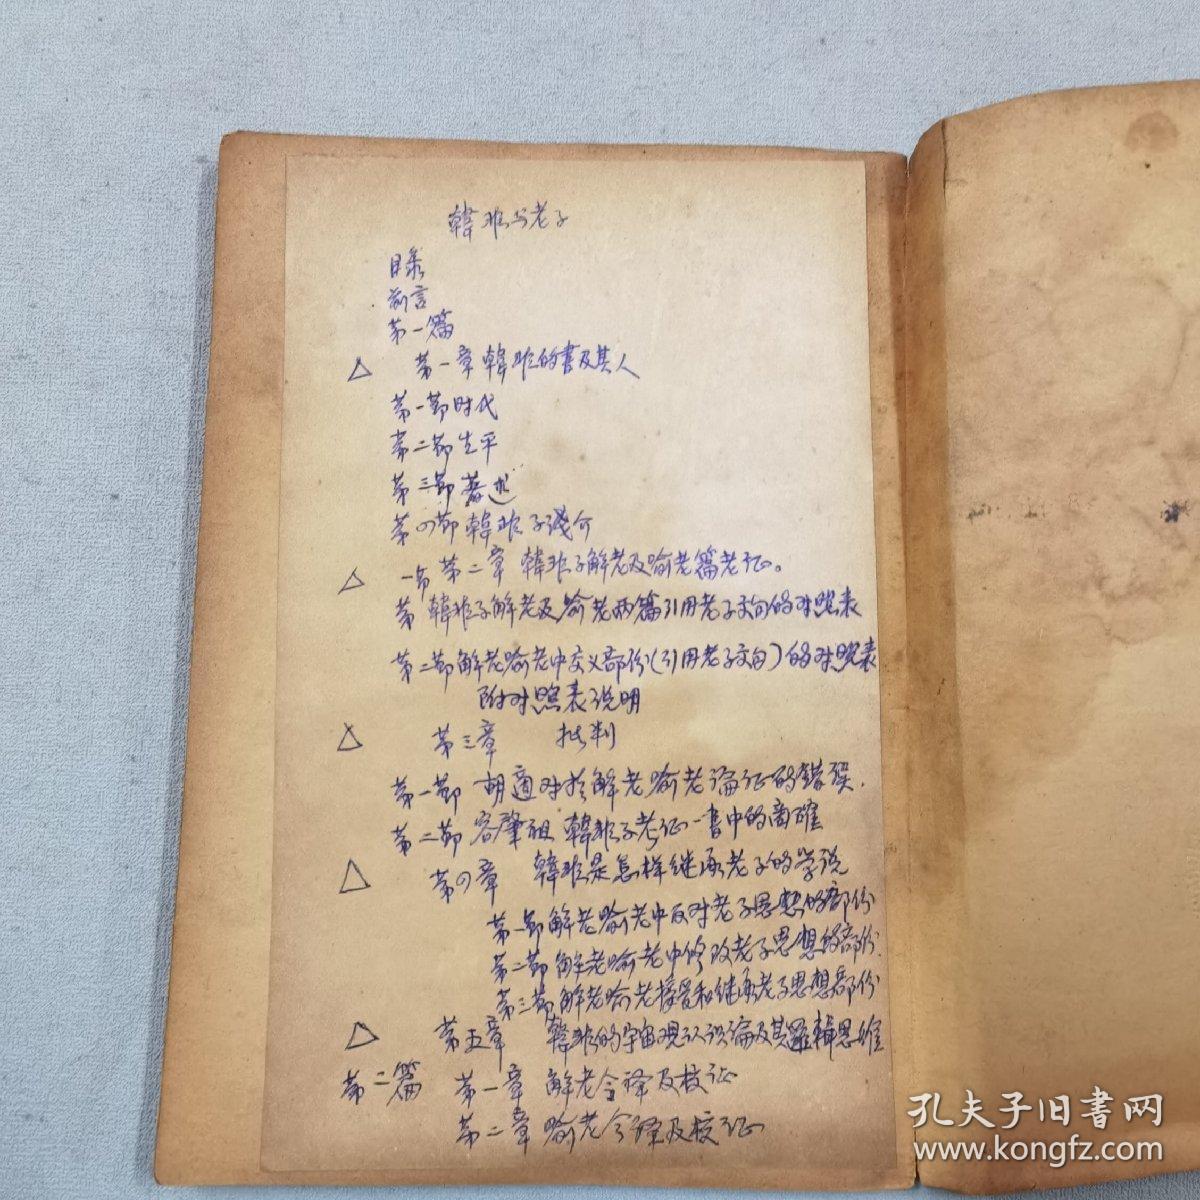 韓非与老子
目录
前言
第一篇
△ 第一章 韓非的書及其人
第一節 时代
第二節 生平
第三節 著述
第四節 韓非子浅介
△ 第二章 韓非子解老及喻老篇考证。
第 韓非子解老及喻老两篇引用老子文句的对照表
第二節 解老喻老中交义部份(引用老子文句)的对照表
附对照表说明
△ 第三章 批判
第一節 胡適对於解老喻老论证的錯误.
第二節 容肇祖韓非子考证一書中的商確
△ 第四章 韓非是怎样继承老子的学说
第一節 解老喻老中反对老子思想的部份
第二節 解老喻老中修改老子思想的部份.
第三節 解老喻老接受和继承老子思想部份
△ 第五章 韓非的宇宙观认识论及其邏輯思维
第二篇 第一章 解老今译及校证
第二章 喻老今译及校证
孔夫子旧書网
www.kongfz.com